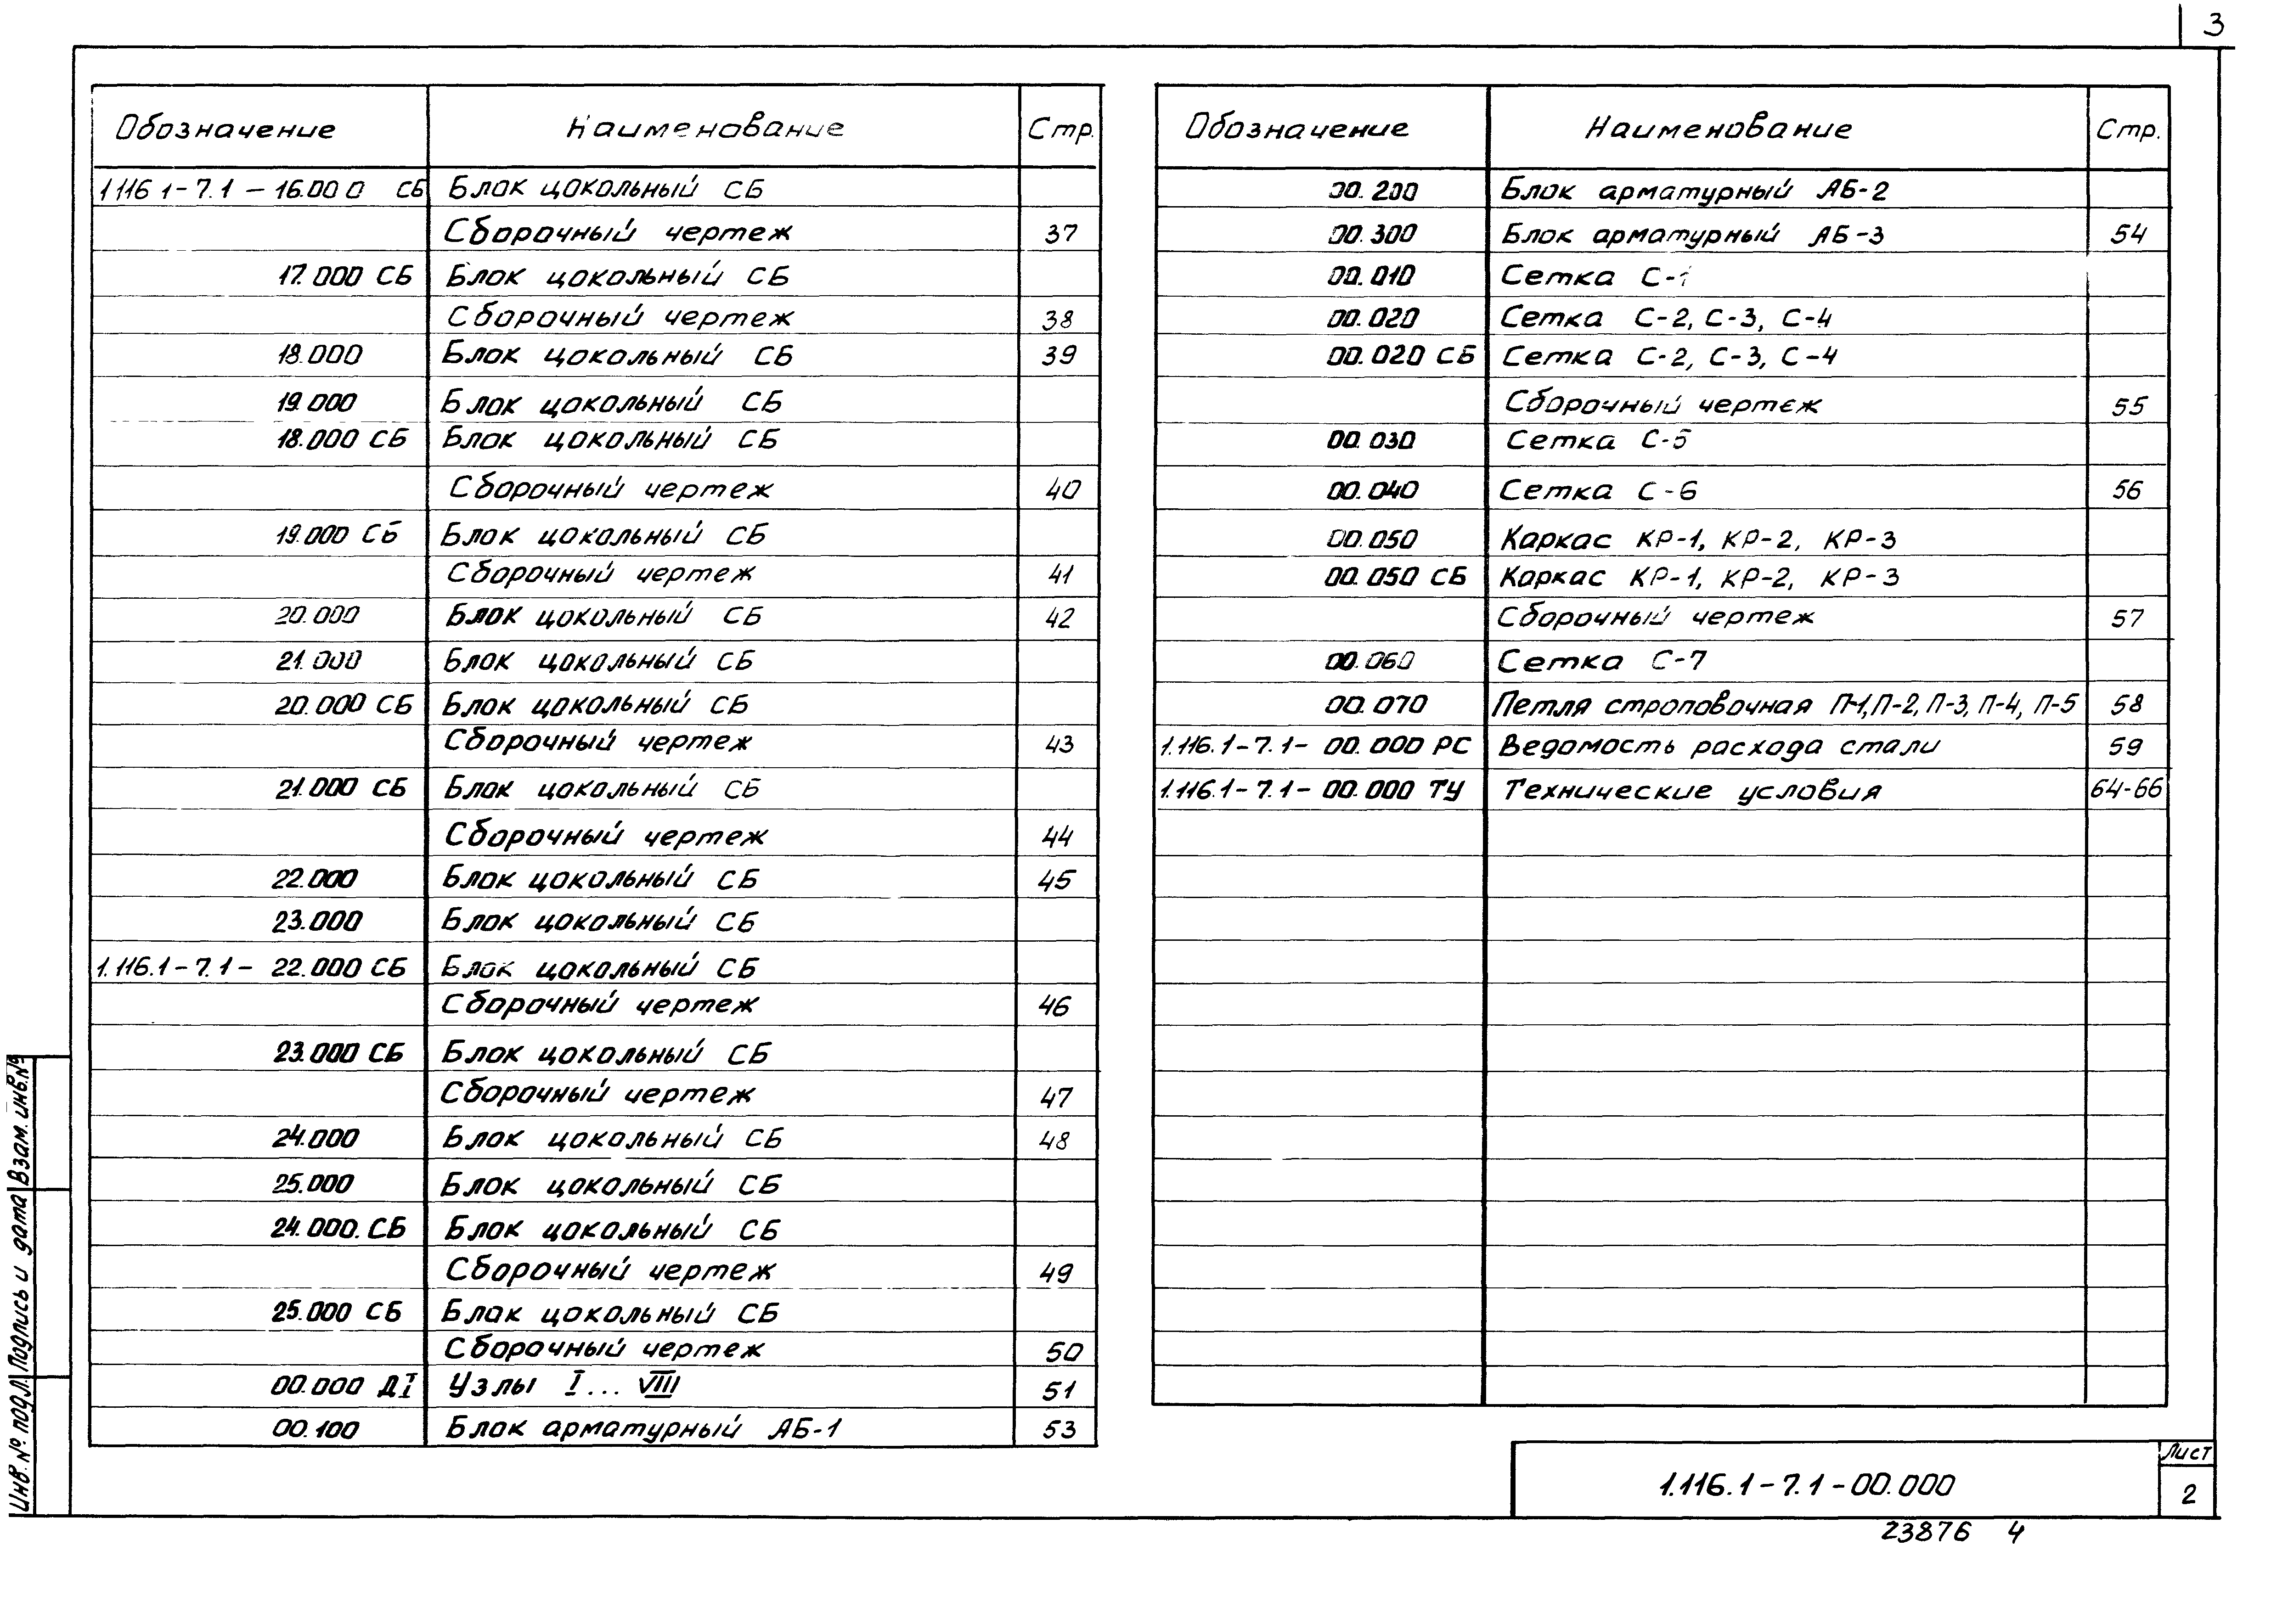 3
Обозначение Наименование Стр.
1 116 1-7.1-16.000 СБ Блок цокольный СБ
Сборочный чертеж 37
17.000 СБ Блок цокольный СБ
Сборочный чертеж 38
18.000 Блок цокольный СБ 39
19.000 Блок цокольный СБ
18.000 СБ Блок цокольный СБ
Сборочный чертеж 40
19.000 СБ Блок цокольный СБ
Сборочный чертеж 41
20.000 Блок цокольный СБ 42
21.000 Блок цокольный СБ
20.000 СБ Блок цокольный СБ
Сборочный чертеж 43
21.000 СБ Блок цокольный СБ
Сборочный чертеж 44
22.000 Блок цокольный СБ 45
23.000 Блок цокольный СБ
1.116.1-7.1- 22.000 СБ Блок цокольный СБ
Сборочный чертеж 46
23.000 СБ Блок цокольный СБ
Сборочный чертеж 47
24.000 Блок цокольный СБ 48
25.000 Блок цокольный СБ
24.000. СБ Блок цокольный СБ
Сборочный чертеж 49
25.000 СБ Блок цокольный СБ
Сборочный чертеж 50
00.000 ДI Узлы I... VIII 51
00.100 Блок арматурный АБ-1 53
Обозначение Наименование Стр.
00.200 Блок арматурный АБ-2
00.300 Блок арматурный АБ-3 54
00.010 Сетка С-1
00.020 Сетка С-2, С-3, С-4
00.020 СБ Сетка С-2, С-3, С-4
Сборочный чертеж 55
00.030 Сетка С-5
00.040 Сетка С-6 56
00.050 Каркас КР-1, КР-2, КР-3
00.050 СБ Каркас КР-1, КР-2, КР-3
Сборочный чертеж 57
00.060 Сетка С-7
00.070 Петля строповочная П-1, П-2, П-3, П-4, П-5 58
1.116.1-7.1- 00.000 РС Ведомость расхода стали 59
1.116.1-7.1- 00.000 ТУ Технические условия 64-66
Инв. № подл. Подпись и дата Взам. инв. №
1.116.1-7.1-00.000
Лист
2
23876 4